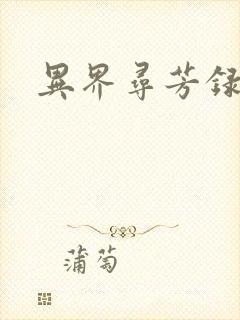 異界尋芳録
蒲萄